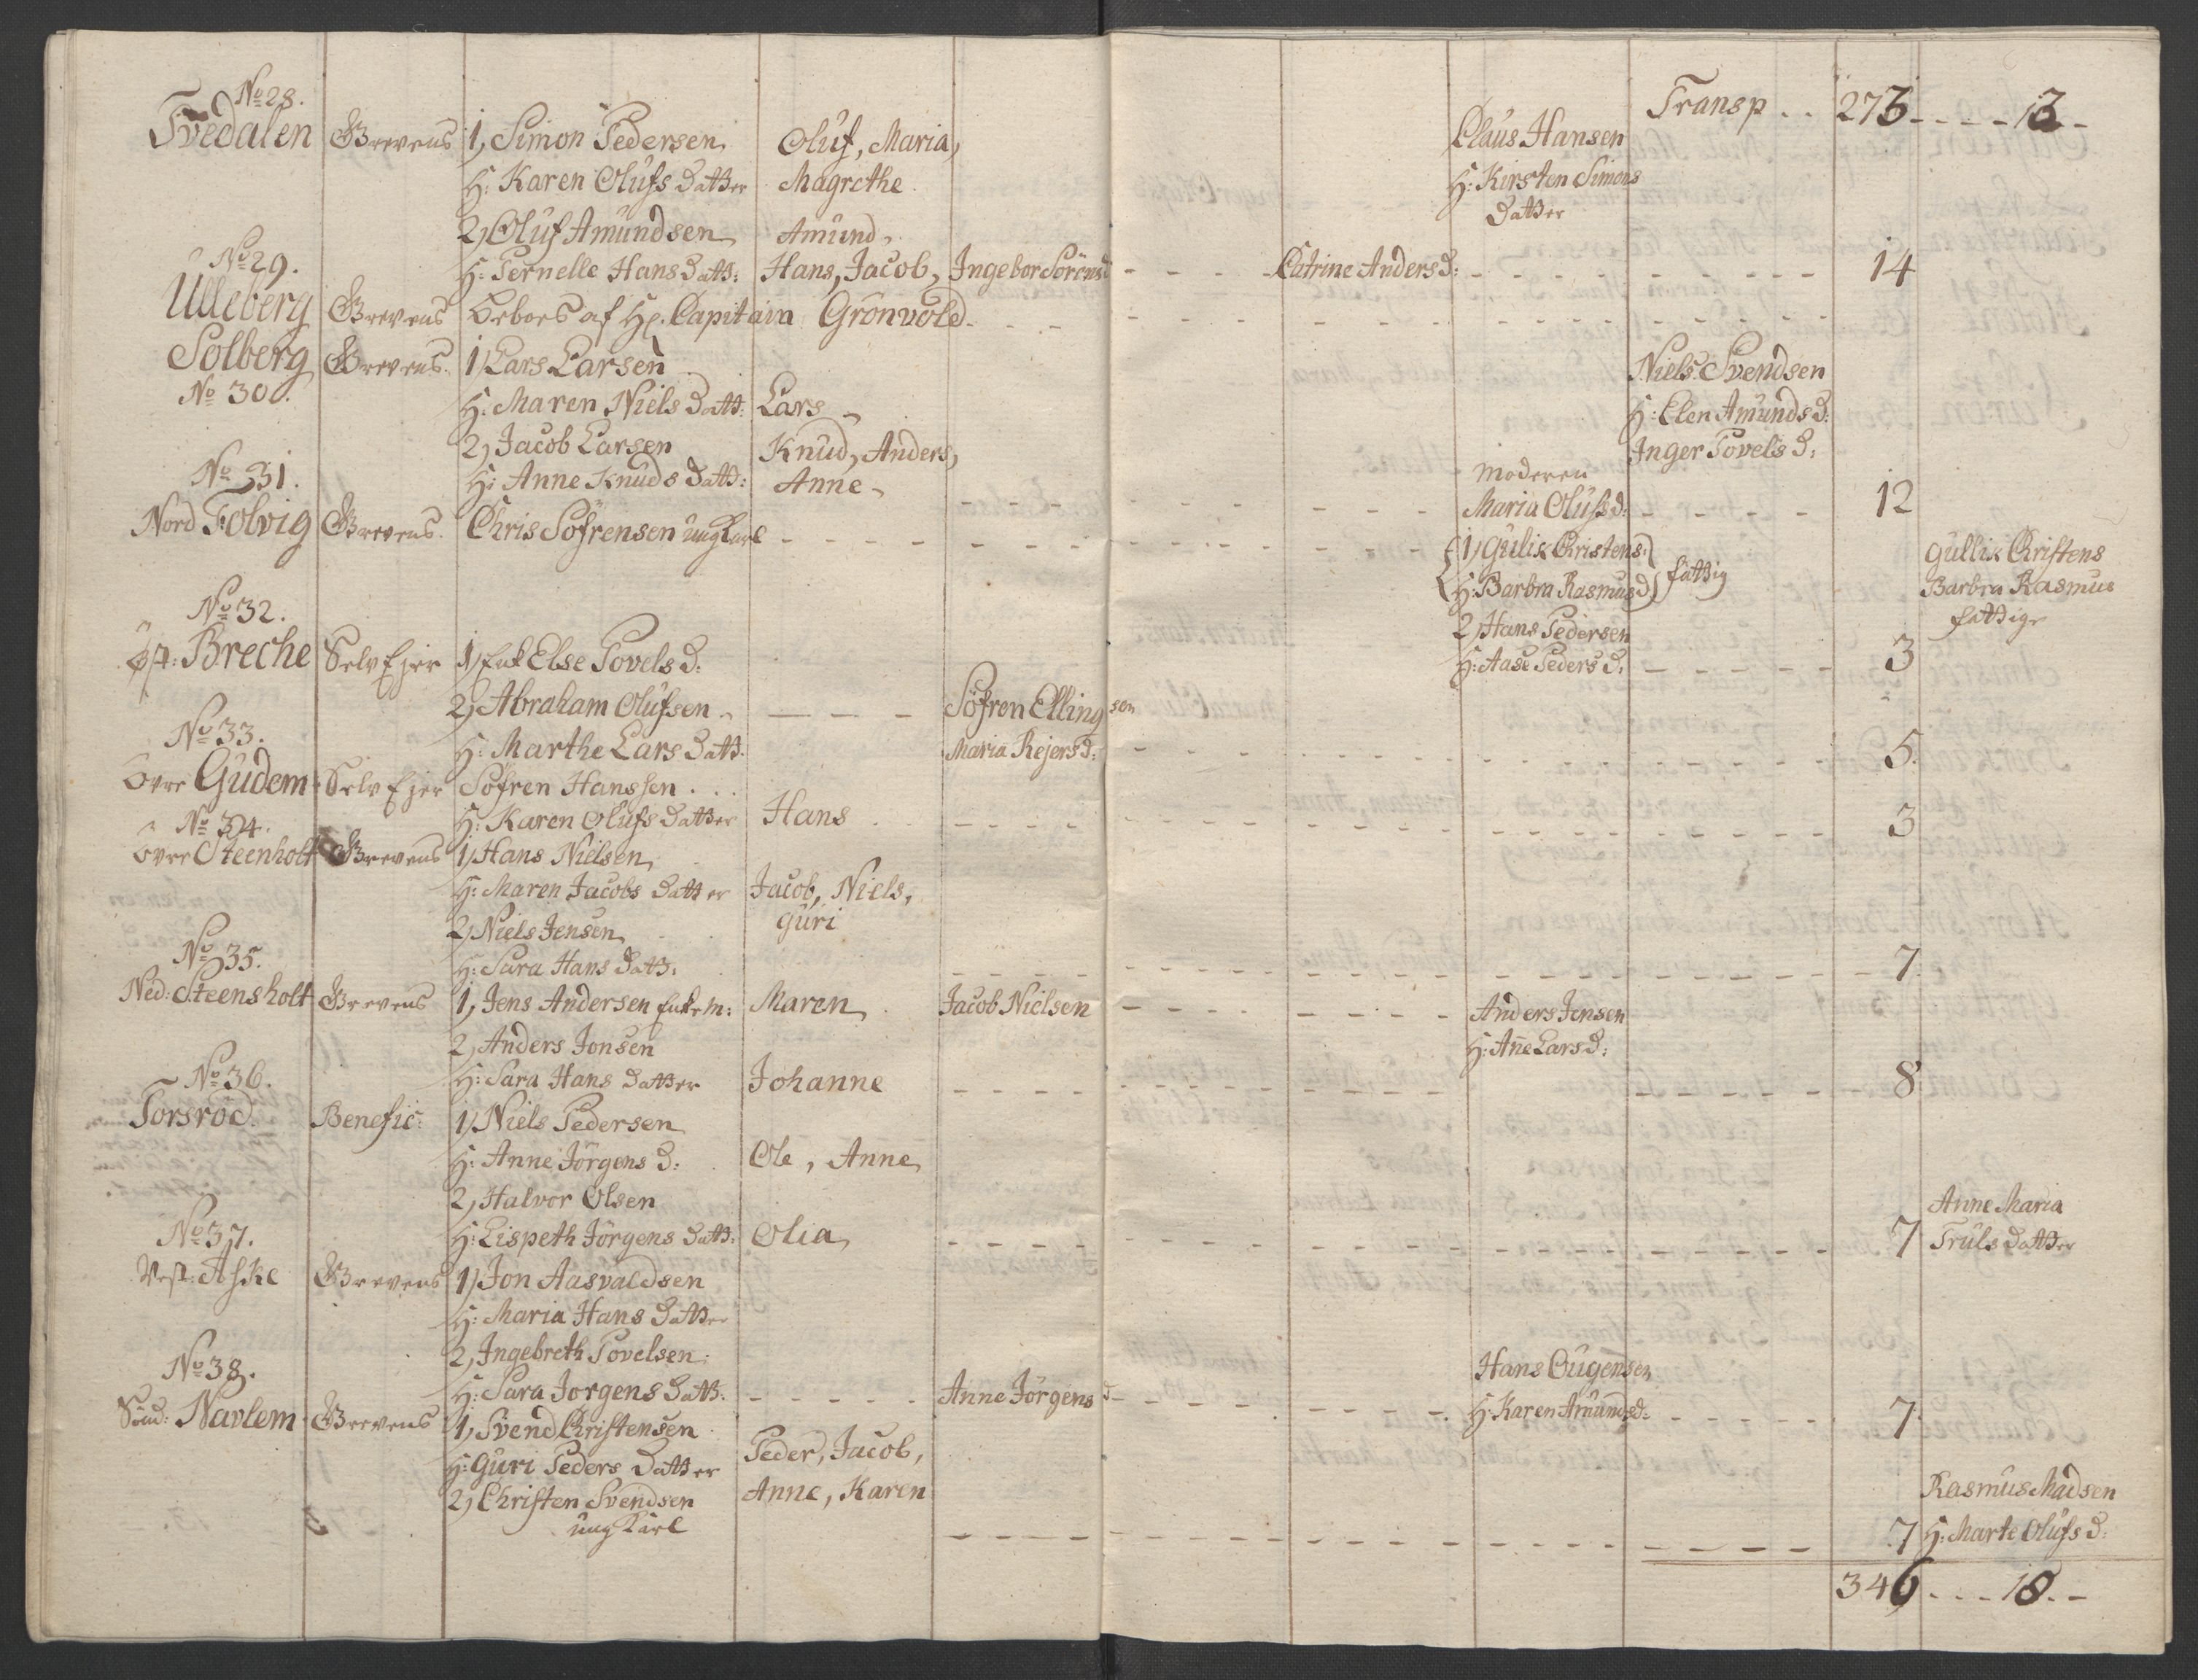 Transp . . 273 - - - - 13 -
No 28.
Tvedalen Grevens 1, Simon Pedersen Oluf, Maria, Claus Hansen
H: Karen Olufs Datter Magrethe H: Kirsten Simons
2, Oluf Amundsen Amund, Datter
No 29. H: Pernelle Hans Datt: Hans, Jacob, Ingebor Sörensd - - - Catrine Anders D: - - - - 14
Ulleberg Grevens Beboes af Hr. Capitain Grönvold - - -
Solberg Grevens 1, Lars Larsen Niels Svendsen
No 30. H: Maren Niels Datt: Lars H: Elen Amunds D:
2, Jacob Larsen Knud, Anders, Inger Povels D:
No 31. H: Anne Knuds Datt: Anne - - - Moderen
Maria Olufsd: - - - - 12
Nord Folvig Grevens Chris Söfrensen ung Karl - - - - {1, Gulik Christens:} Gullik Christens
{H: Barbra Rasmus d} fattig Barbra Rasmus
No 32. 2, Hans Pedersen fattige
Öst: Breche Selv Ejer 1, Enk Else Povels D: H: Aase Peders D: - - - - 3
2, Abraham Olufsen - - - - Söfren Ellingsen
No 33. H: Marthe Lars Datt. Maria Rejers D: - - - - 5.
Övre Gudem Selv Ejer Söfren Hanssen . . .
No 34. H: Karen Olufs Datter Hans - - - - 3
Övre Steenholt Grevens 1, Hans Nielsen
H: Maren Jacobs Datter Jacob, Niels,
2, Niels Jensen Guri
No 35. H: Sara Hans Datt: - - - - 7.
Ned: Steensholt Grevens 1, Jens Andersen Enkem: Maren Jacob Nielsen - - - - Anders Jensen
2, Anders Jonsen H: Ane Lars D:
No 36. H: Sara Hans Datter Johanne - - - - 8
Torsröd Benefic: 1, Niels Pedersen
H: Anne Jörgens D: Ole, Anne
2, Halvor Olsen Anne Maria
No 37. H: Lispeth Jörgens Datt: Olia - - - - 7 Truls Datter
Vest: Aske Grevens 1, Jon Aasvaldsen
H: Maria Hans Datter
2, Ingebreth Povelsen Hans Ougensen
No 38. H: Sara Jorgens Datt. - - - - Anne Jörgens d - - - - H: Karen Amunds d: - - - - 7.
Sönd: Navlem Grevens 1, Svend Christensen
H: Guri Peders Datter Peder, Jacob,
2, Christen Svendsen Anne, Karen Rasmus Madsen
ung Karl - - - - 7 H: Marte Olufs D:
346 - - - 18. -